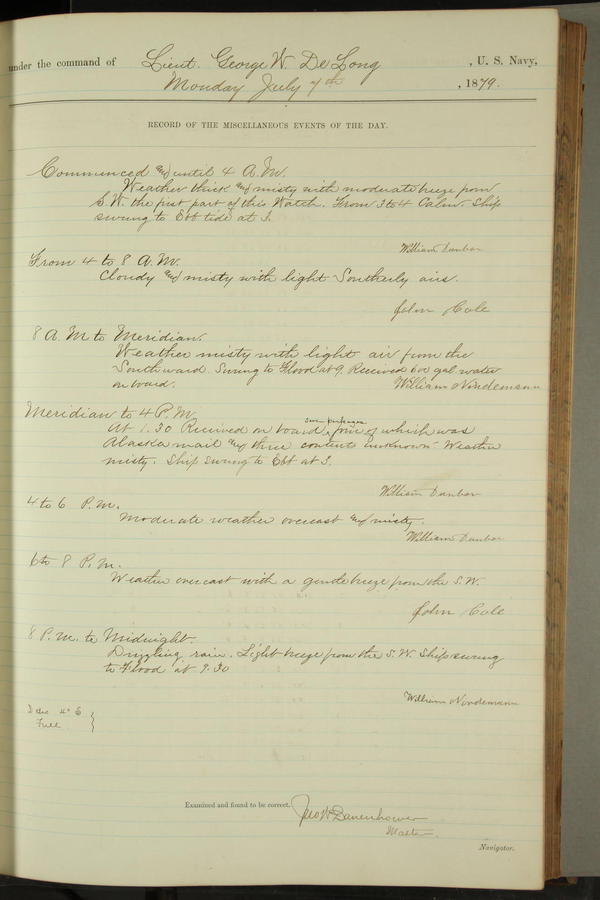 under the command of Lieut. George W. De Long, U. S. Navy,
Monday July 7th, 1879.
RECORD OF THE MISCELLANEOUS EVENTS OF THE DAY.
Commenced and until 4 A.M.
Weather thick and misty with moderate breeze from
S.W. the first part of this Watch. From 3 to 4 Calm. Ship
swung to Ebb tide at 3.
William Dunbar
From 4 to 8 A.M.
Cloudy and misty with light Southerly airs.
John Cole
8 A.M to Meridian.
Weather misty with light air from the
Southward. Swung to Flood at 9. Received 600 gal water
on board.
William Nindemann
Meridian to 4 P.M.
At 1.30 Received on board packages four of which was
Alaska mail and three content unknown. Weather
misty. Ship swung to Ebb at 3.
William Dunbar
4 to 6 P.M.
Moderate weather overcast and misty.
William Dunbar
6 to 8 P.M.
Weather overcast with a gentle breeze from the S.W.
John Cole
8 P.M. to Midnight.
Drizzling rain. Light breeze from the S.W. Ship swung
to Flood at 9.30
William Nindemann
Examined and found to be correct.
Jno W Danenhower
Master.
Navigator.